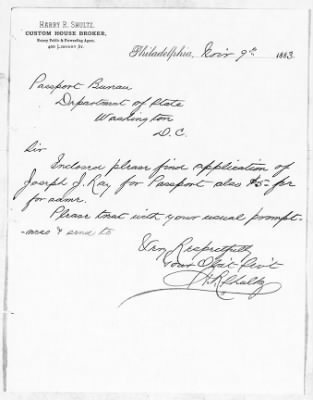 HARRY R. SHULTZ,
CUSTOM HOUSE BROKER,
Notary Public & Forwarding Agent,
Philadelphia, Nov 9th 1883
Passport Bureau
Department of State
Washington
D.C.
Sir
Inclosed please find application of
Joseph J. Ray for Passport also $5- for
for same.
Please treat with your usual prompt-
-ness & send to
Very Respectfully
Your Ob't Serv't
H R Shultz